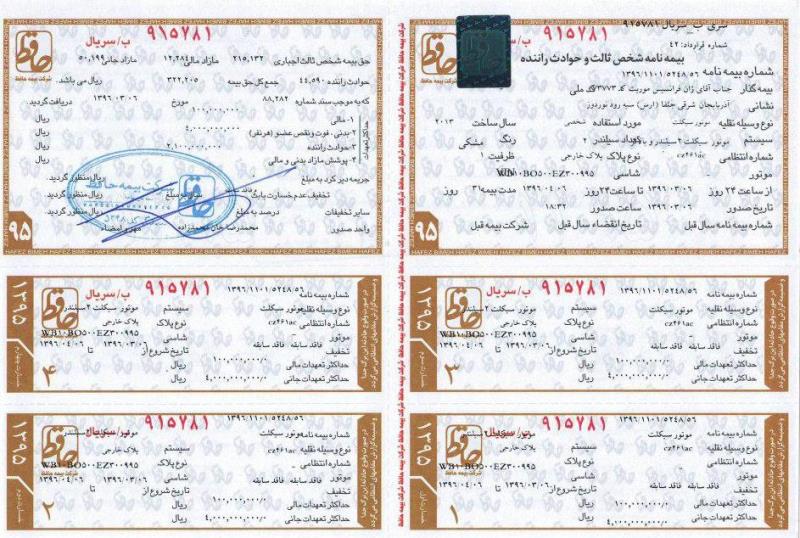 سری ب سریال ۹۱۵۷۸۱
شماره قرارداد: ۴۲
بیمه نامه شخص ثالث و حوادث راننده
شماره بیمه نامه ۱۳۹۶/۱۱۰۱/۵۲۴۸/۵۶
بیمه گذار جناب آقای ژان فرانسیس موریت ک ۳۷۷۳ کد ملی
نشانی آذربایجان شرقی جلفا (ارس) سه رود نوردوز
نوع وسیله نقلیه موتور سیکلت مورد استفاده شخصی سال ساخت ۲۰۱۳
سیستم موتور سیکلت ۲ سیلندر تعداد سیلندر ۲ رنگ مشکی
شماره انتظامی cz۴۶۱ac نوع پلاک پلاک خارجی ظرفیت ۱
موتور - شاسی WB۱۰BO۵۰۰EZ۳۰۰۹۹۵
از ساعت ۲۴ روز ۱۳۹۶/۰۳/۰۶ تا ساعت ۲۴ روز ۱۳۹۶/۰۴/۰۶ مدت بیمه ۳۱ روز
تاریخ صدور ۱۳۹۶/۰۳/۰۶ ساعت صدور ۱۸:۳۲
شماره بیمه نامه سال قبل تاریخ انقضاء سال قبل شرکت بیمه قبل
۹۵
ب/سریال ۹۱۵۷۸۱
حافظ
شرکت بیمه حافظ
حق بیمه شخص ثالث اجباری ۲۱۵,۱۳۲ مازاد مالی ۱۲,۲۸۴ مازاد جانی ۵۰,۱۹۹
حوادث راننده ۴۴,۵۹۰ جمع کل حق بیمه ۳۲۲,۲۰۵ ریال می باشد.
که به موجب سند شماره ۸۸,۲۸۲ مورخ ۱۳۹۶/۰۳/۰۶ دریافت گردید.
حداکثر تعهدات
۱- مالی ۱۰۰,۰۰۰,۰۰۰/۰ ریال
۲- بدنی - فوت و نقص عضو (هر نفر) ۴,۰۰۰,۰۰۰,۰۰۰/۰ ریال
۳- حوادث راننده ۲,۱۰۰,۰۰۰,۰۰۰/۰ ریال
۴- پوشش مازاد بدنی و مالی
جریمه دیر کرد به مبلغ ریال منظور گردید.
تخفیف عدم خسارت بابت فاقد سابقه سال به مبلغ ریال منظور گردید
سایر تخفیفات درصد به مبلغ ریال منظور گردید
واحد صدور محمدرضا خان محمدزاده مهر و امضاء
۹۵
شرکت بیمه حافظ
۱۳۹۵
ب/سریال ۹۱۵۷۸۱
شماره بیمه نامه ۱۳۹۶/۱۱۰۱/۵۲۴۸/۵۶
نوع وسیله نقلیه موتور سیکلت سیستم موتور سیکلت ۲ سیلندر
شماره انتظامی cz۴۶۱ac نوع پلاک پلاک خارجی
موتور شاسی WB۱۰BO۵۰۰EZ۳۰۰۹۹۵
تخفیف فاقد سابقه فاقد سابقه تاریخ شروع از ۱۳۹۶/۰۳/۰۶ تا ۱۳۹۶/۰۴/۰۶
حداکثر تعهدات مالی ۱۰۰,۰۰۰,۰۰۰/۰ ریال
حداکثر تعهدات جانی ۴,۰۰۰,۰۰۰,۰۰۰/۰ ریال
۳
۱۳۹۵
ب/سریال ۹۱۵۷۸۱
شماره بیمه نامه ۱۳۹۶/۱۱۰۱/۵۲۴۸/۵۶
نوع وسیله نقلیه موتور سیکلت سیستم موتور سیکلت ۲ سیلندر
شماره انتظامی cz۴۶۱ac نوع پلاک پلاک خارجی
موتور شاسی WB۱۰BO۵۰۰EZ۳۰۰۹۹۵
تخفیف فاقد سابقه فاقد سابقه تاریخ شروع از ۱۳۹۶/۰۳/۰۶ تا ۱۳۹۶/۰۴/۰۶
حداکثر تعهدات مالی ۱۰۰,۰۰۰,۰۰۰/۰ ریال
حداکثر تعهدات جانی ۴,۰۰۰,۰۰۰,۰۰۰/۰ ریال
۴
۱۳۹۵
ب/سریال ۹۱۵۷۸۱
شماره بیمه نامه ۱۳۹۶/۱۱۰۱/۵۲۴۸/۵۶
نوع وسیله نقلیه موتور سیکلت سیستم موتور سیکلت ۲ سیلندر
شماره انتظامی cz۴۶۱ac نوع پلاک پلاک خارجی
موتور شاسی WB۱۰BO۵۰۰EZ۳۰۰۹۹۵
تخفیف فاقد سابقه فاقد سابقه تاریخ شروع از ۱۳۹۶/۰۳/۰۶ تا ۱۳۹۶/۰۴/۰۶
حداکثر تعهدات مالی ۱۰۰,۰۰۰,۰۰۰/۰ ریال
حداکثر تعهدات جانی ۴,۰۰۰,۰۰۰,۰۰۰/۰ ریال
۱
۱۳۹۵
ب/سریال ۹۱۵۷۸۱
شماره بیمه نامه ۱۳۹۶/۱۱۰۱/۵۲۴۸/۵۶
نوع وسیله نقلیه موتور سیکلت سیستم موتور سیکلت ۲ سیلندر
شماره انتظامی cz۴۶۱ac نوع پلاک پلاک خارجی
موتور شاسی WB۱۰BO۵۰۰EZ۳۰۰۹۹۵
تخفیف فاقد سابقه فاقد سابقه تاریخ شروع از ۱۳۹۶/۰۳/۰۶ تا ۱۳۹۶/۰۴/۰۶
حداکثر تعهدات مالی ۱۰۰,۰۰۰,۰۰۰/۰ ریال
حداکثر تعهدات جانی ۴,۰۰۰,۰۰۰,۰۰۰/۰ ریال
۲